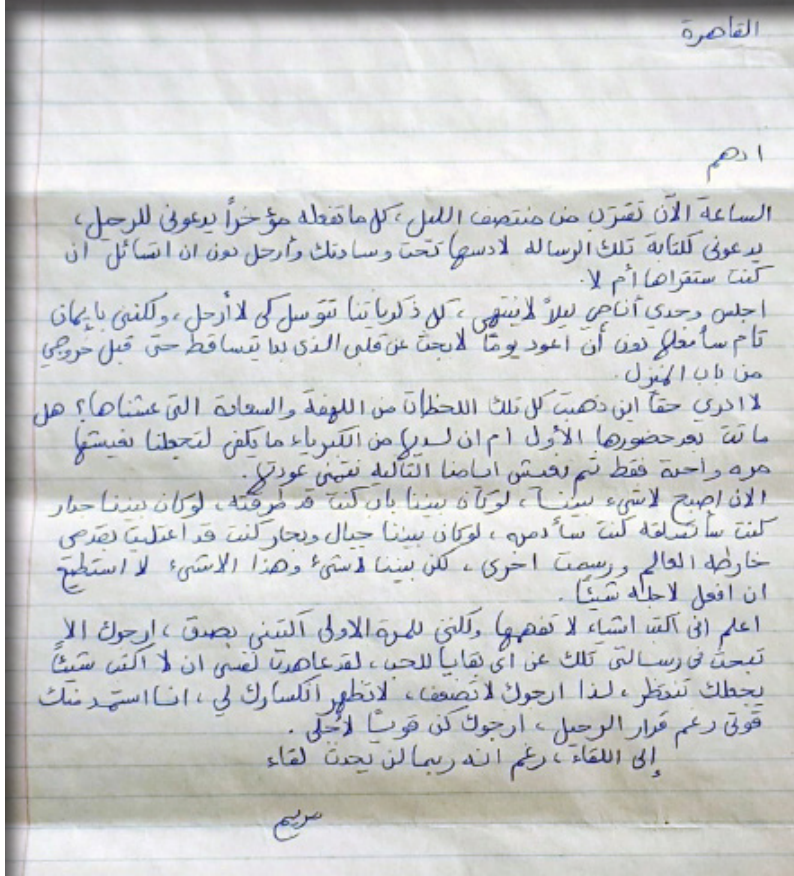 القاهرة
ادهم
الساعة الآن تقترب من منتصف الليل، كل ما تفعله مؤخراً يدعونى للرحيل،
يدعونى لكتابة تلك الرساله لادسها تحت وسادتك وأرحل دون ان اتسائل ان
كنت ستقراها أم لا.
اجلس وحدي أناجى ليلاً لاينتهى، كل ذكرياتنا تتوسل كى لا أرحل، ولكننى بإيمان
تام سأفعلها دون أن أعود يومًا لابحث عن قلبى الذى بدا يتساقط حتى قبل خروجي
من باب المنزل.
لا ادري حقاً اين ذهبت كل تلك اللحظات من اللهفة والسعادة التى عشناها؟ هل
ماتت بعد حضورها الأول ام ان لديها من الكبرياء ما يكفى لتجعلنا نعيشها
مره واحدة فقط ثم نعيش ايامنا التاليه نتمنى عودتها.
الان اصبح لاشىء بيننا، لو كان بيننا باب كنت قد طرقته، لو كان بيننا جدار
كنت سأتسلقه كنت سأ، لو كان بيننا جبال وبحار كنت قد اعتليت بقدمى
خارطه العالم ورسمت اخرى، لكن بيننا لاشئ وهذا الاشىء لا استطيع
ان افعل لاجله شيئًا.
اعلم انى اكتب اشياء لا تفهمها ولكنى للمرة الاولى اكتبنى بصدق، ارجوك الا
تبحث فى رسالتى تلك عن اى بقايا للحب، لقد عاهدت نفسى ان لا اكتب شيئاً
يجعلك تنتظر، لذا ارجوك لا تضعف، لاتظهر انكسارك لي، انا استمد منك
قوتى رغم قرار الرحيل، ارجوك كن قويًا لأجلى.
إلى اللقاء، رغم انه ربما لن يحدث لقاء
مريم